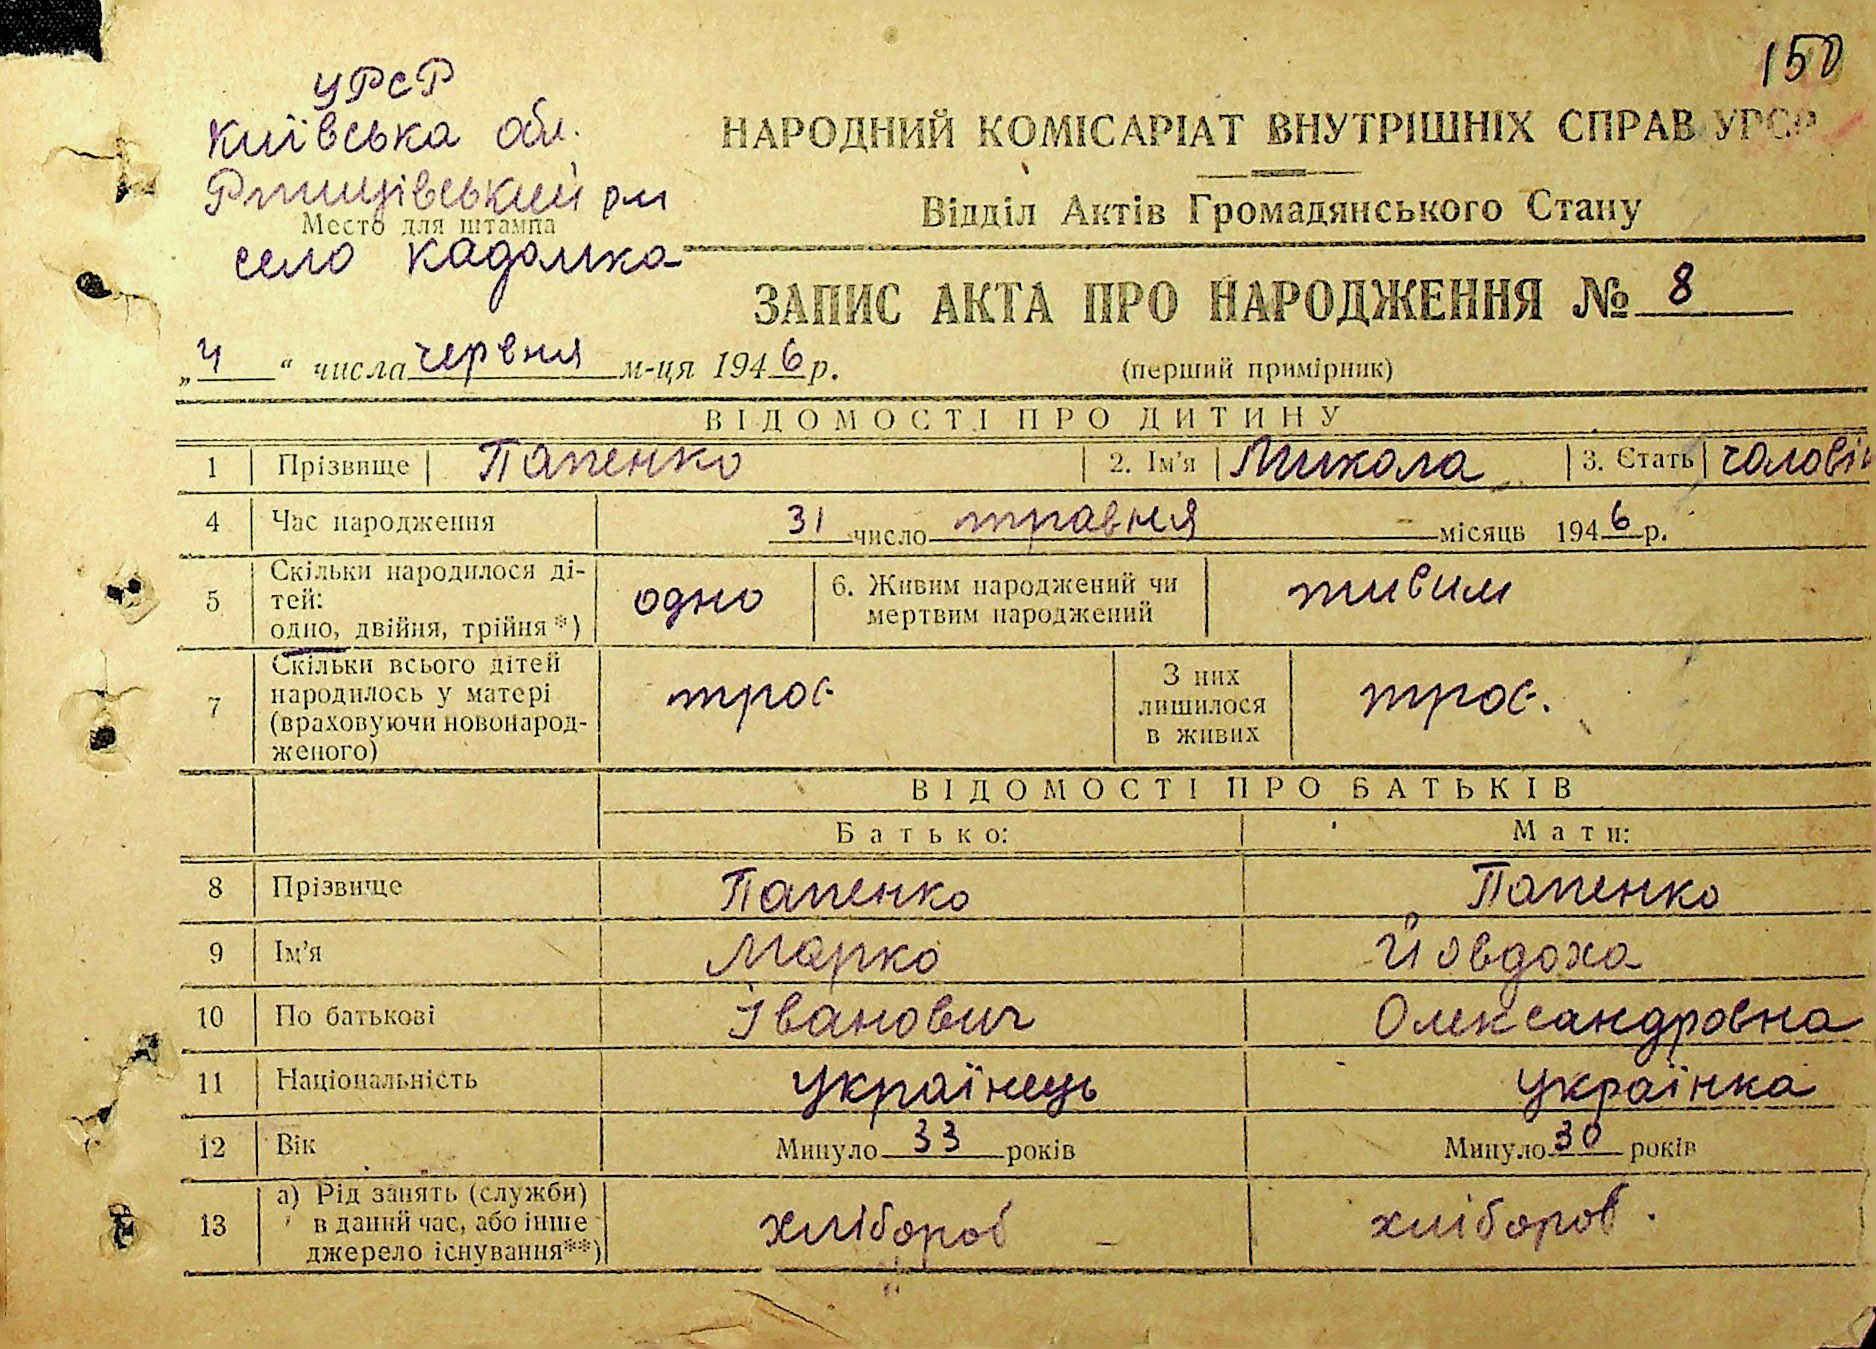 150
УРСР
Київська обл.
Ржищівський р-н
Место для штампа
село Кадомка
НАРОДНИЙ КОМІСАРІАТ ВНУТРІШНІХ СПРАВ УРСР
Відділ Актів Громадянського Стану
ЗАПИС АКТА ПРО НАРОДЖЕННЯ № 8
„4“ числа червня м-ця 1946 р. (перший примірник)
ВІДОМОСТІ ПРО ДИТИНУ
1 Прізвище Папенко 2. Ім'я Микола 3. Стать чолові
4 Час народження 31 число травня місяць 1946 р.
5 Скільки народилося ді-
тей:
одно, двійня, трійня*) одно 6. Живим народжений чи
мертвим народжений живим
7 Скільки всього дітей
народилось у матері
(враховуючи новонарод-
женого) троє З них
лишилося
в живих троє.
ВІДОМОСТІ ПРО БАТЬКІВ
Батько: Мати:
8 Прізвище Папенко Папенко
9 Ім'я Марко Йовдоха
10 По батькові Іванович Олександровна
11 Національність українець українка
12 Вік Минуло 33 років Минуло 30 років
13 а) Рід занять (служби)
в даний час, або інше
джерело існування**) хлібороб хлібороб.